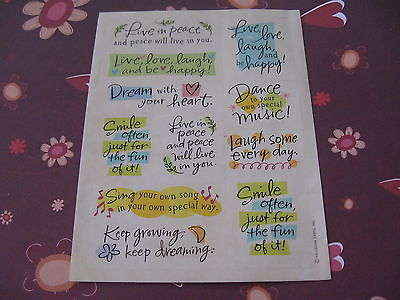 Live in peace
and peace will live in you.
Live, love, laugh,
and be happy!
Dream with
your heart.
Smile
often,
just for
the fun
of it!
Live in
peace
and peace
will live
in you.
Sing your own song
in your own special way.
Keep growing,
keep dreaming.
Live,
love,
laugh,
and be
happy!
Dance
to your
own special
music!
Laugh some
every day.
Smile
often,
just for
the fun
of it!